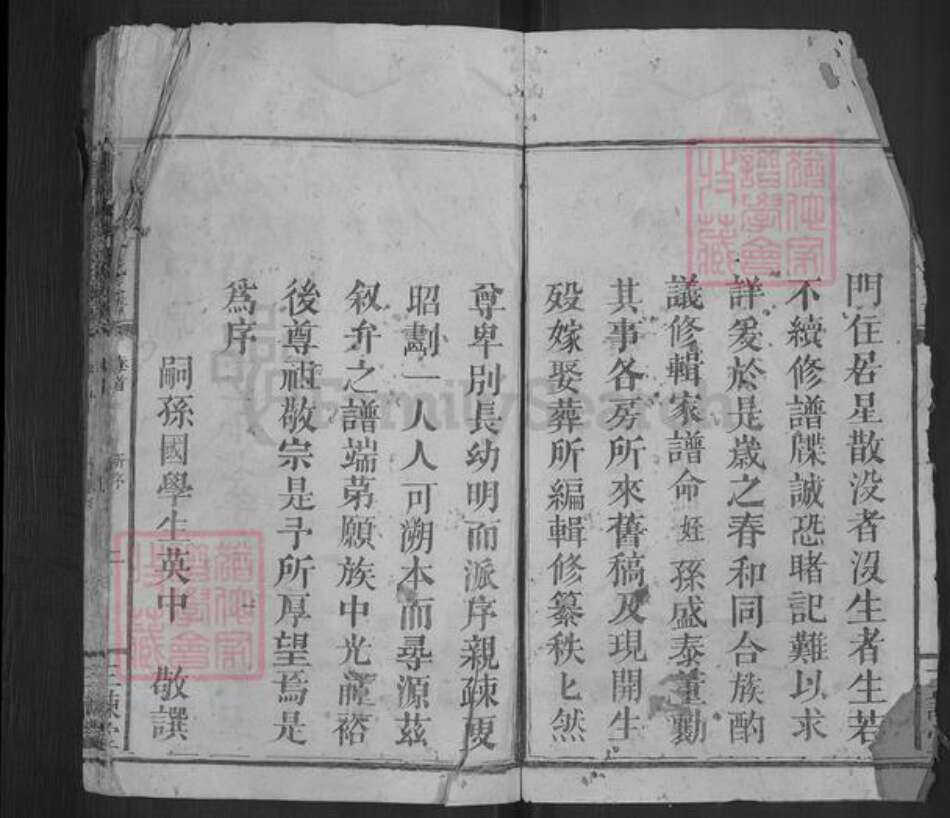 門住居星散没者沒生者生若
不續修譜牒誠恐睹記難以求
詳爰於是歲之春和同合族酌
議修輯家譜命姪孫盛泰董勷
其事各房所來舊稿及現開生
殁嫁娶葬所編輯修纂秩匕然
尊卑別長幼明而派序親疎更
昭劃一人人可溯本而尋源茲
叙弁之譜端苐願族中光前裕
後尊祖敬宗是予所厚望焉是
爲序
嗣孫國學生英中 敬譔
卷首 新序 二
FamilySearch